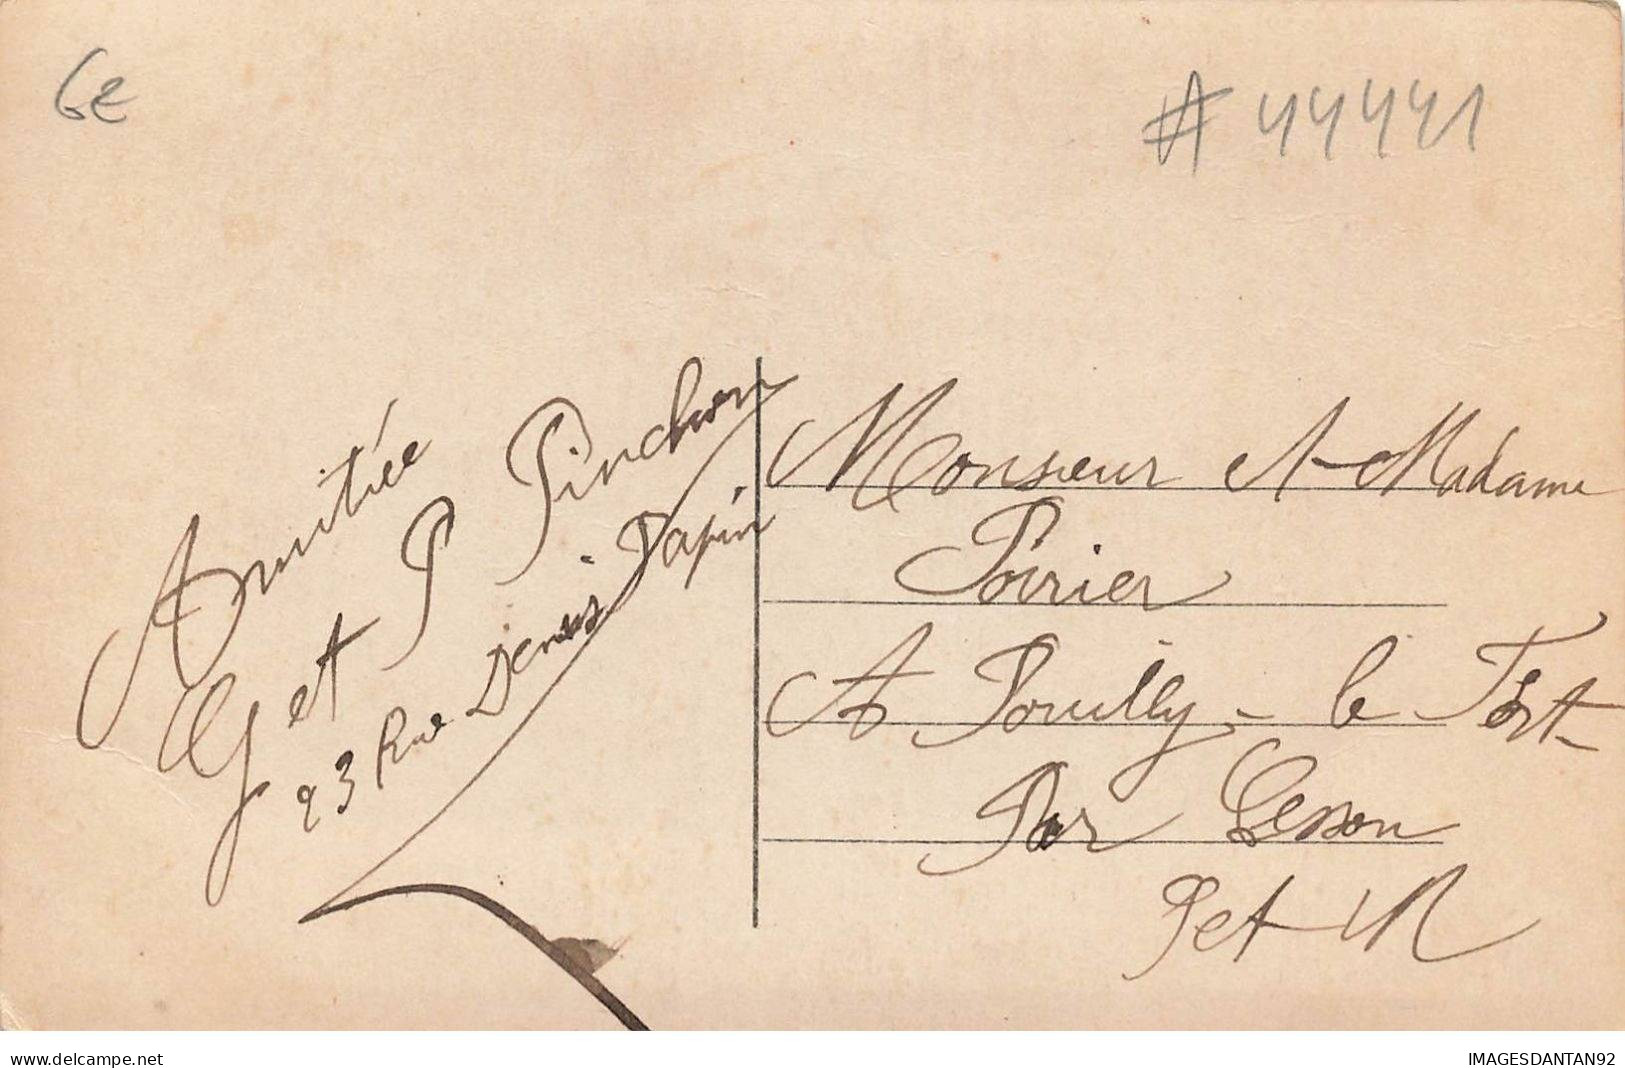 6€
# 44441
Amitiée
G et P Pinchon
23 Rue Denis Papin
Monsieur et Madame
Poirier
A Pouilly - le Fort
Par Cesson
S et M
www.delcampe.net
IMAGESDANTAN92